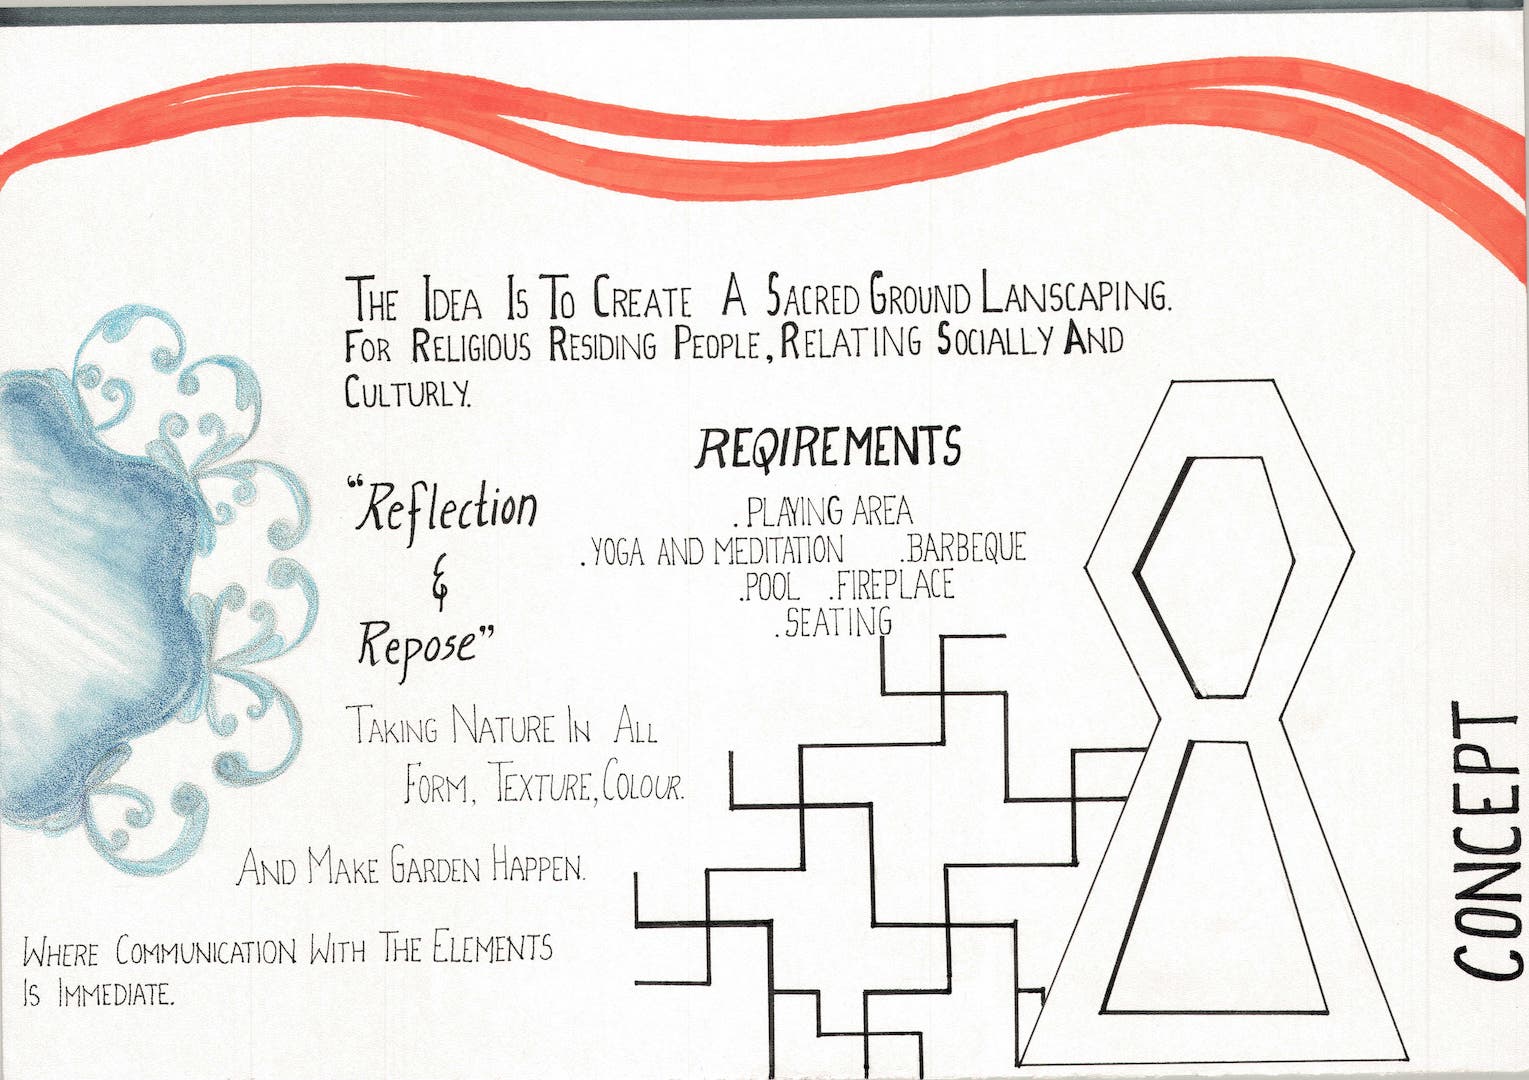 THE IDEA IS TO CREATE A SACRED GROUND LANSCAPING.
FOR RELIGIOUS RESIDING PEOPLE, RELATING SOCIALLY AND
CULTURLY.
REQIREMENTS
.PLAYING AREA
.YOGA AND MEDITATION .BARBEQUE
.POOL .FIREPLACE
.SEATING
"Reflection
&
Repose"
TAKING NATURE IN ALL
FORM, TEXTURE, COLOUR.
AND MAKE GARDEN HAPPEN.
WHERE COMMUNICATION WITH THE ELEMENTS
IS IMMEDIATE.
CONCEPT